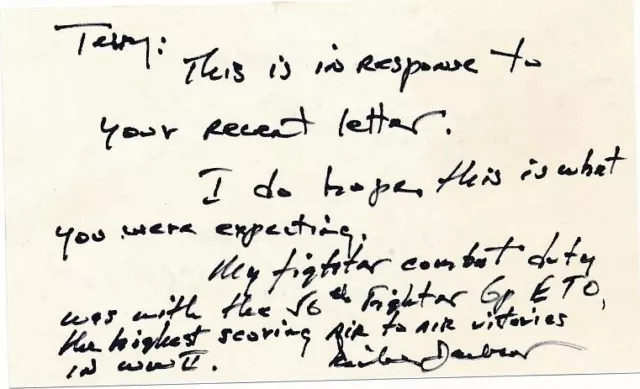 Terry:
This is in response to
your recent letter.
I do hope this is what
you were expecting.
My fighter combat duty
was with the 56th Fighter Gp ETO,
the highest scoring air to air vitories
in WWII.